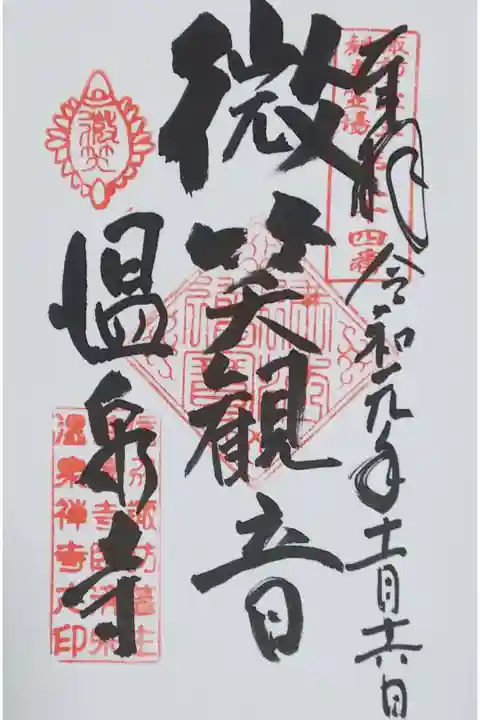 奉拝 令和元年十一月十六日
微笑観音
温泉寺
微笑
佛法僧寶
温泉禅寺之印